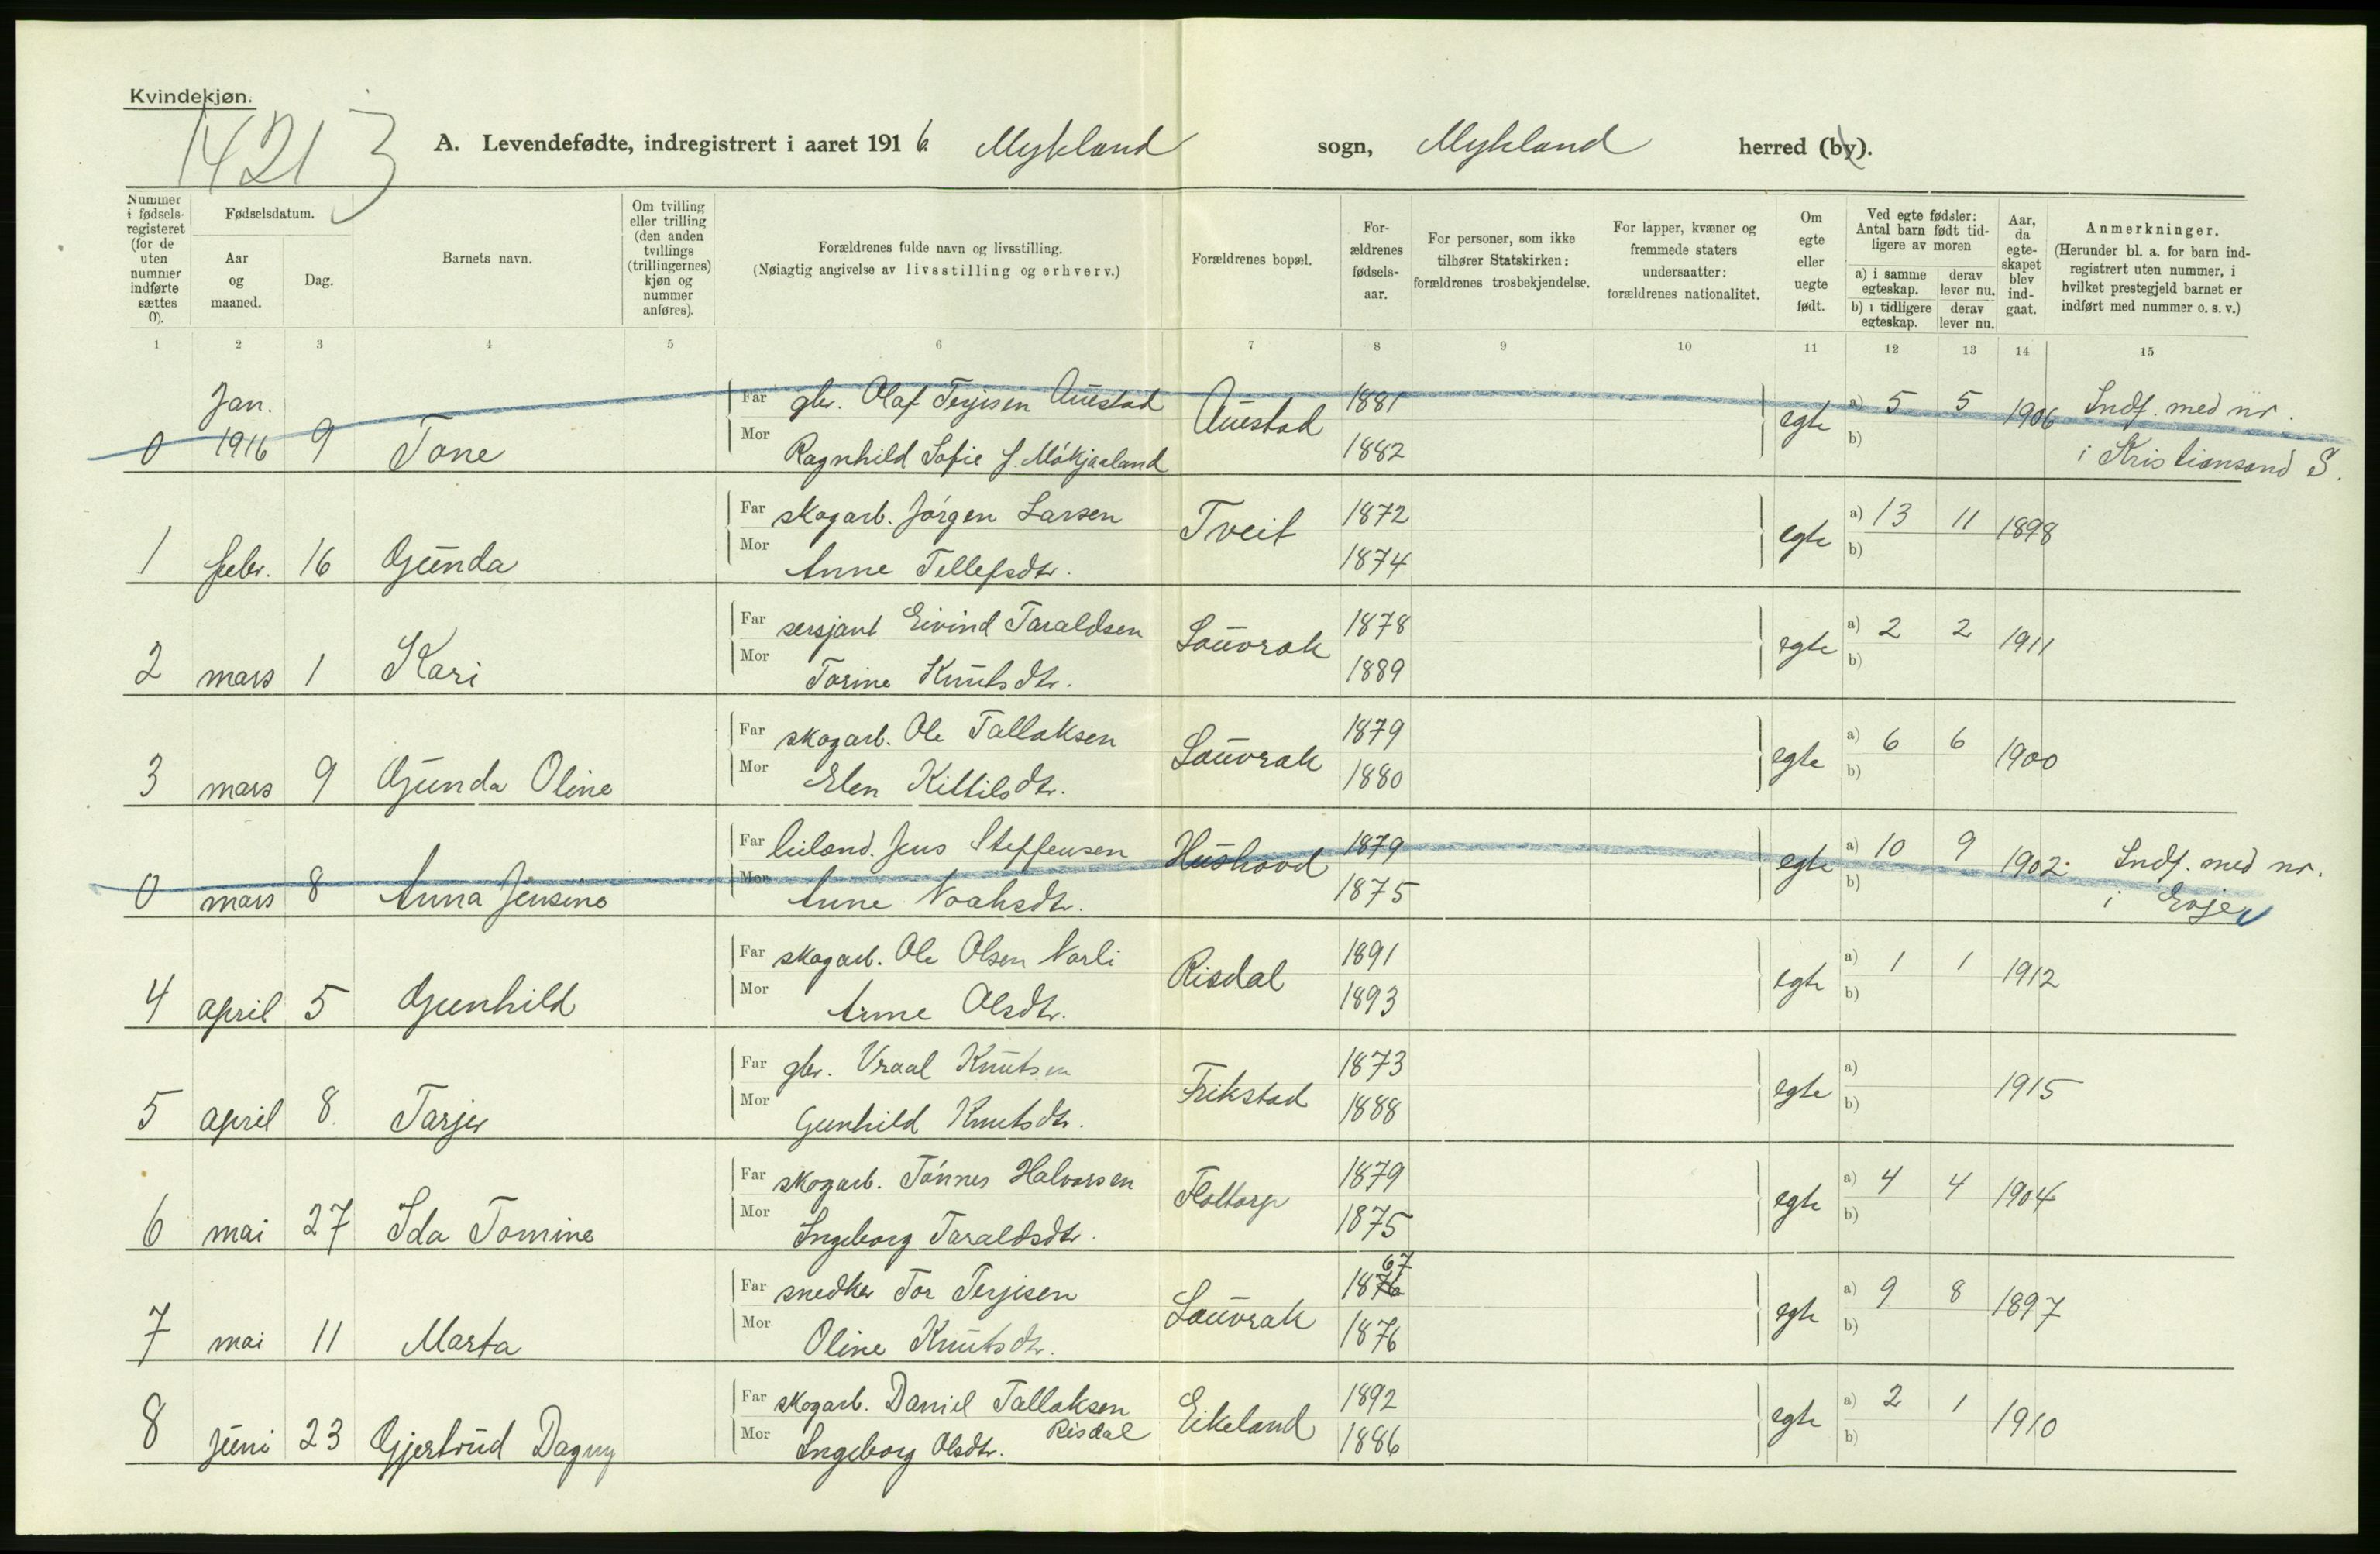 Kvindekjøn.
14213
A. Levendefødte, indregistrert i aaret 1916. Mykland sogn, Mykland herred (by).
Nummer i fødsels-registeret (for de uten nummer indførte sættes 0).
Fødselsdatum.
Aar og maaned.
Dag.
Barnets navn.
Om tvilling eller trilling (den anden tvillings (trillingernes) kjøn og nummer anføres).
Forældrenes fulde navn og livsstilling.
(Nøiagtig angivelse av livsstilling og erhverv.)
Forældrenes bopæl.
For-ældrenes fødsels-aar.
For personer, som ikke tilhører Statskirken: forældrenes trosbekjendelse.
For lapper, kvæner og fremmede staters undersaatter: forældrenes nationalitet.
Om egte eller uegte født.
Ved egte fødsler: Antal barn født tid-ligere av moren
a) i samme egteskap. derav lever nu.
b) i tidligere egteskap. derav lever nu.
Aar, da egte-skapet blev ind-gaat.
Anmerkninger.
(Herunder bl. a. for barn ind-registrert uten nummer, i hvilket prestegjeld barnet er indført med nummer o. s. v.)
1 2 3 4 5 6 7 8 9 10 11 12 13 14 15
Jan. Far gbr. Olaf Terjisen Auestad Auestad 1881 egte a) 5 5 1906 Indf. med nr.
0 1916 9 Tone Mor Ragnhild Sofie f. Mókjaaland 1882 b) i Kristiansand S.
Far skogarb. Jórgen Larsen Tveit 1872 egte a) 13 11 1898
1 febr. 16 Gunda Mor Anne Tellefsdtr. 1874 b)
Far sersjant Eivind Taraldsen Lauvrak 1878 egte a) 2 2 1911
2 mars 1 Kari Mor Torine Knutsdtr. 1889 b)
Far skogarb. Ole Tallaksen Lauvrak 1879 egte a) 6 6 1900
3 mars 9 Gunda Oline Mor Elen Kittilsdtr. 1880 b)
Far Jens Steffensen Hushovd 1879 egte a) 10 9 1902. Indf. med nr.
0 mars 8 Anna Jensine Mor Anne Noahsdtr. 1875 b) i Evje
Far skogarb. Ole Olsen Narli Risdal 1891 egte a) 1 1 1912
4 april 5 Gunhild Mor Anne Olsdtr. 1893 b)
Far gbr. Vraal Knutsen Frikstad 1873 egte a) 1915
5 april 8. Tarjer Mor Gunhild Knutsdtr. 1888 b)
Far skogarb. Tónnes Halvorsen 1879 egte a) 4 4 1904
6 mai 27 Ida Tomine Mor Ingeborg Taraldsdtr. 1875 b)
67
Far snedker Tor Terjesen Lauvrak 1876 egte a) 9 8 1897
7 mai 11 Marta Mor Oline Knutsdtr. 1876 b)
Far skogarb. Daniel Tallaksen Eikeland 1892 egte a) 2 1 1910
Risdal
8 juni 23 Gjertrud Dagny Mor Ingeborg Olsdtr. 1886 b)